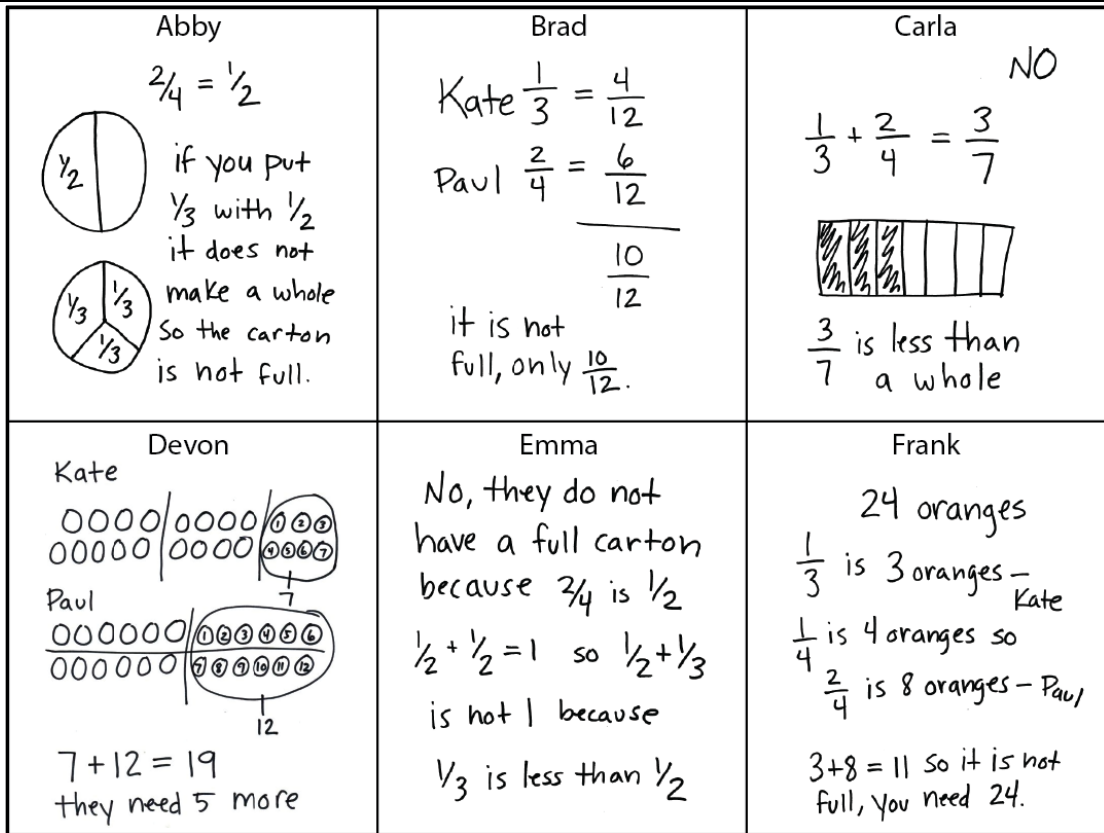 Abby
2/4 = 1/2
1/2
if you put
1/3 with 1/2
it does not
make a whole
so the carton
is not full.
1/3 1/3
1/3
Brad
Kate 1/3 = 4/12
Paul 2/4 = 6/12
10/12
it is not
full, only 10/12.
Carla
NO
1/3 + 2/4 = 3/7
3/7 is less than
a whole
Devon
Kate
1 2 3
4 5 6 7
7
Paul
1 2 3 4 5 6
7 8 9 10 11 12
12
7 + 12 = 19
they need 5 more
Emma
No, they do not
have a full carton
because 2/4 is 1/2
1/2 + 1/2 = 1 so 1/2 + 1/3
is not 1 because
1/3 is less than 1/2
Frank
24 oranges
1/3 is 3 oranges – Kate
1/4 is 4 oranges so
2/4 is 8 oranges – Paul
3+8 = 11 so it is not
full, you need 24.